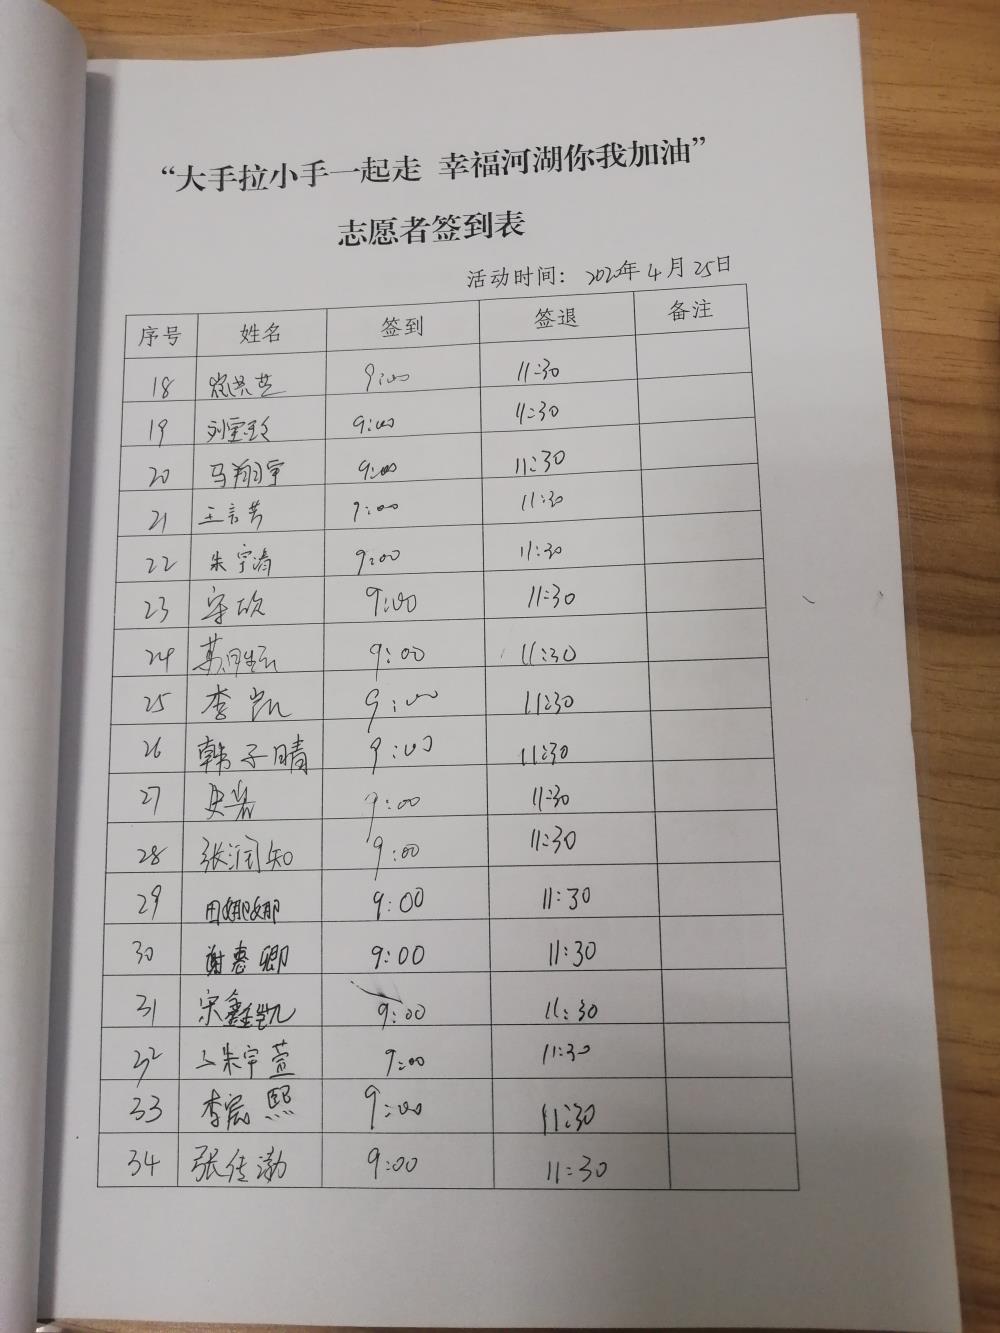 “大手拉小手一起走 幸福河湖你我加油”
志愿者签到表
活动时间: 2020年4月25日
序号 姓名 签到 签退 备注
18 9:00 11:30
19 刘雪玲 9:00 11:30
20 马翔宇 9:00 11:30
21 王言芳 9:00 11:30
22 朱宇清 9:00 11:30
23 宋欣 9:00 11:30
24 9:00 11:30
25 李凯 9:00 11:30
26 韩子晴 9:00 11:30
27 史岩 9:00 11:30
28 张润知 9:00 11:30
29 田娜娜 9:00 11:30
30 谢惠卿 9:00 11:30
31 宋鑫凯 9:00 11:30
32 朱宇萱 9:00 11:30
33 李宸熙 9:00 11:30
34 张传渤 9:00 11:30